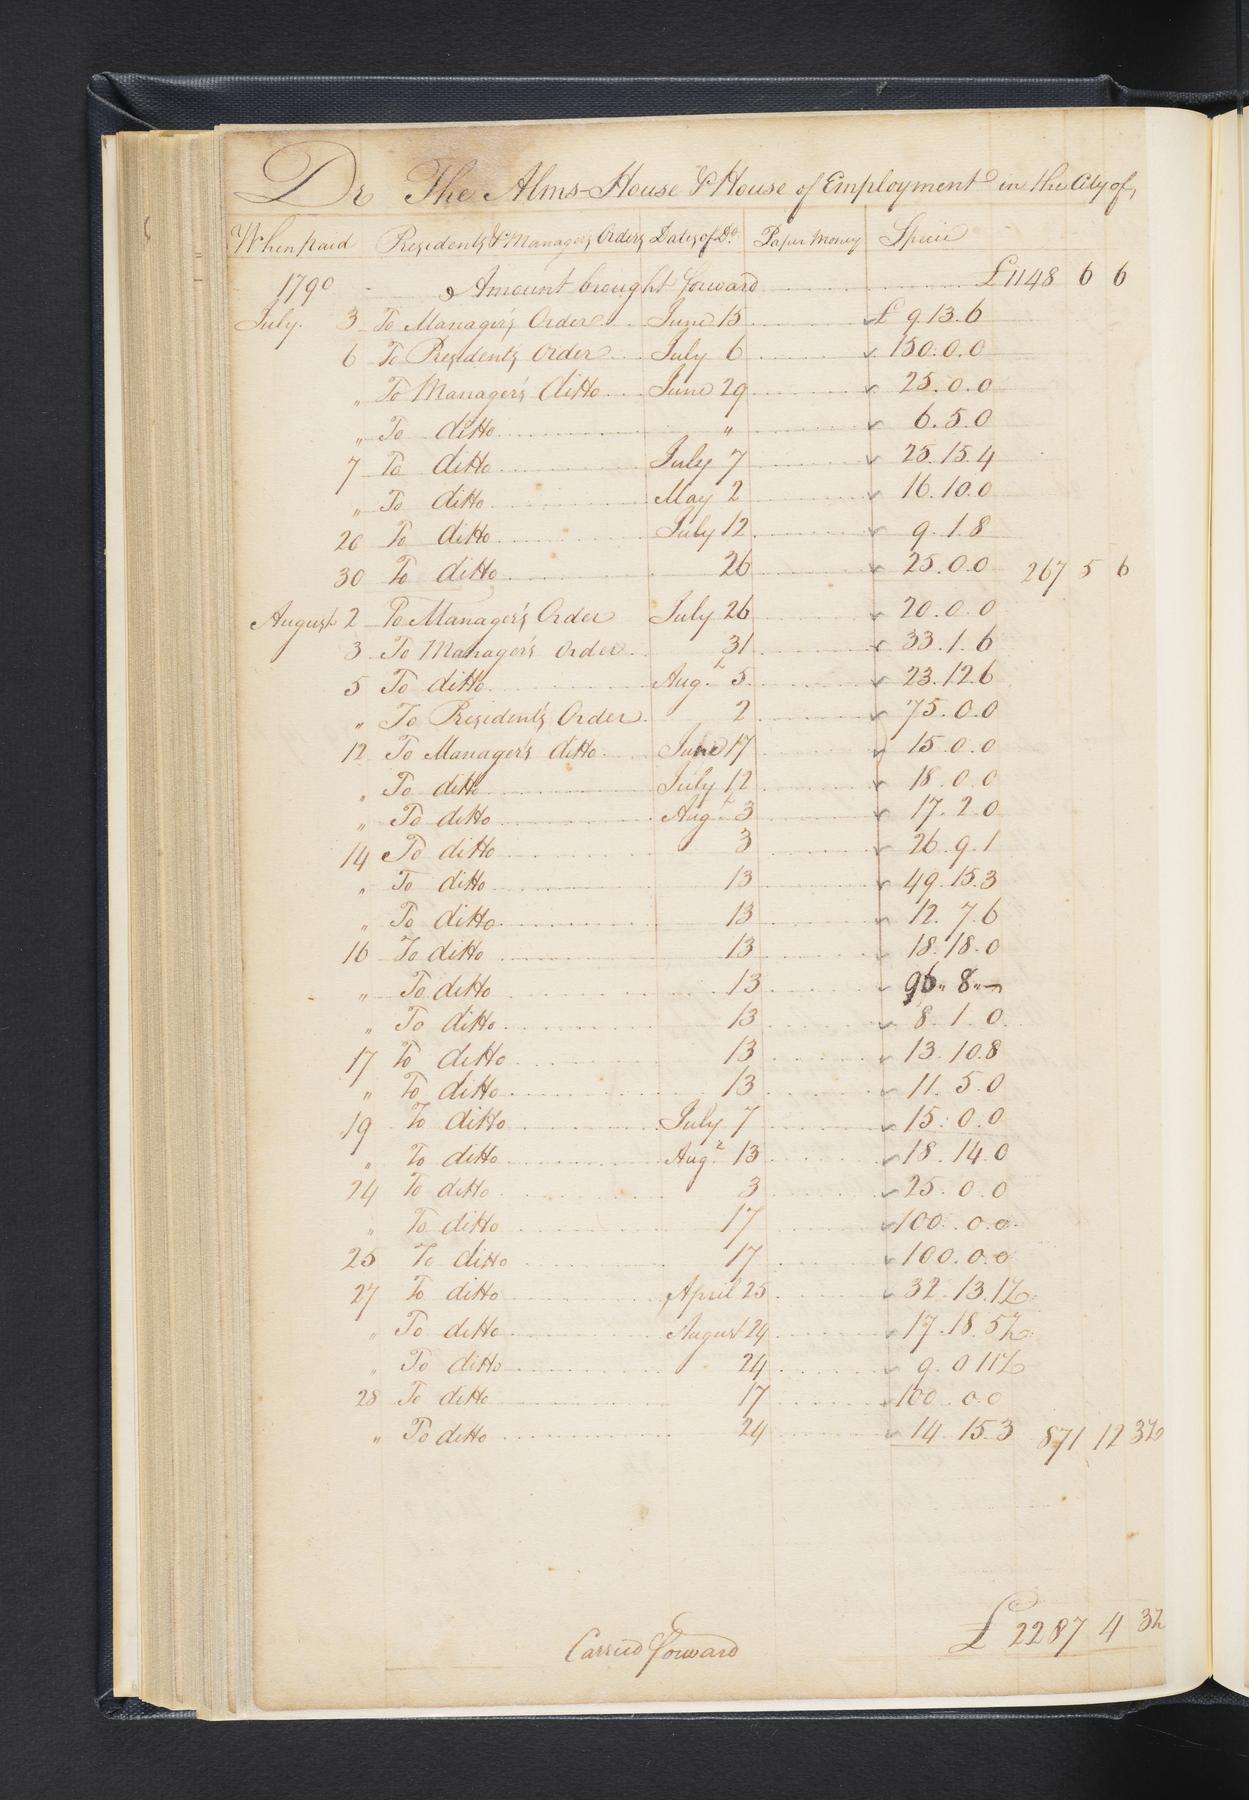 Dr The Alms-House & House of Employment in the City of
When paid Presidents & Managers Orders Dates of Do. Paper Money Specie
1790 Amount brought forward £1148 6 6
July. 3 To Manager's Order June 15 £ 9.13.6
6 To President's Order July 6 150.0.0
„ To Manager's ditto June 29 25.0.0
„ To ditto „ 6.5.0
7 To ditto July 7 25.15.4
„ To ditto May 2 16.10.0
20 To ditto July 12 9.1.8
30 To ditto 26 25.0.0 267 5 6
August 2 To Manager's Order July 26 20.0.0
3 To Manager's Order 31 33.1.6
5 To ditto Augt 5 23.12.6
„ To President's Order 2 75.0.0
12 To Manager's ditto June 17 15.0.0
„ To ditto July 12 18.0.0
„ To ditto Augt 3 17.2.0
14 To ditto 3 26.9.1
„ To ditto 13 49.15.3
„ To ditto 13 12.7.6
16 To ditto 13 18.18.0
„ To ditto 13 96„ 8„ –
„ To ditto 13 8.1.0
17 To ditto 13 13.10.8
„ To ditto 13 11.5.0
19 To ditto July 7 15.0.0
„ To ditto Augt 13 18.14.0
24 To ditto 3 25.0.0
„ To ditto 17 100.0.0
25 To ditto 17 100.0.0
27 To ditto April 25 32.13.1½
„ To ditto August 24 17.18.5½
„ To ditto 24 9.0 11½
28 To ditto 17 100..0 0
„ To ditto 24 14.15.3 871 12 3½
£ 2287 4 3½
Carried forward